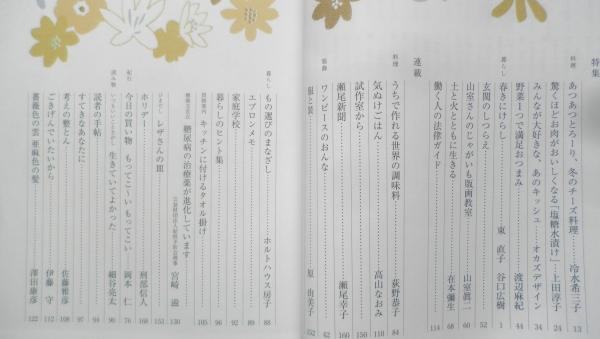 特集
料理
あつあつとろーり、冬のチーズ料理……冷水希三子 13
驚くほどお肉がおいしくなる「塩糖水漬け」……上田淳子 24
みんなが大好きな、あのキッシュ……オカズデザイン 34
野菜1つで満足おつまみ……渡辺麻紀 44
暮らし
春きにけらし……東 直子 谷口広樹 1
玄関のしつらえ……52
山室さんのじゃがいも版画教室……山室眞二 60
土と火とともに生きる……在本彌生 68
働く人の法律ガイド……114
連載
料理
うちで作れる世界の調味料……荻野恭子 84
気ぬけごはん……高山なおみ 118
試作室から……150
瀬尾新聞……瀬尾幸子 160
装飾
ワンピースのおんな……62
服と装……原 由美子 152
暮らし
もの選びのまなざし……ホルトハウス房子 88
エプロンメモ……89
家庭学校……92
暮らしのヒント集……96
キッチンに付けるタオル掛け……105
糖尿病の治療薬が進化しています……宮崎 滋 130
レザさんの皿……151
ホリデー……刑部信人 168
紀行
今日の買い物 もってこ〜い もってこい……岡本 仁 76
読み物
いつもいいことさがし 生きていてよかった……細谷亮太 90
読者の手帖……94
すてきなあなたに……97
考えの整とん……佐藤雅彦 108
ごきげんでいたいから……伊藤 守 112
薔薇色の雲 亜麻色の髪……澤田康彦 122